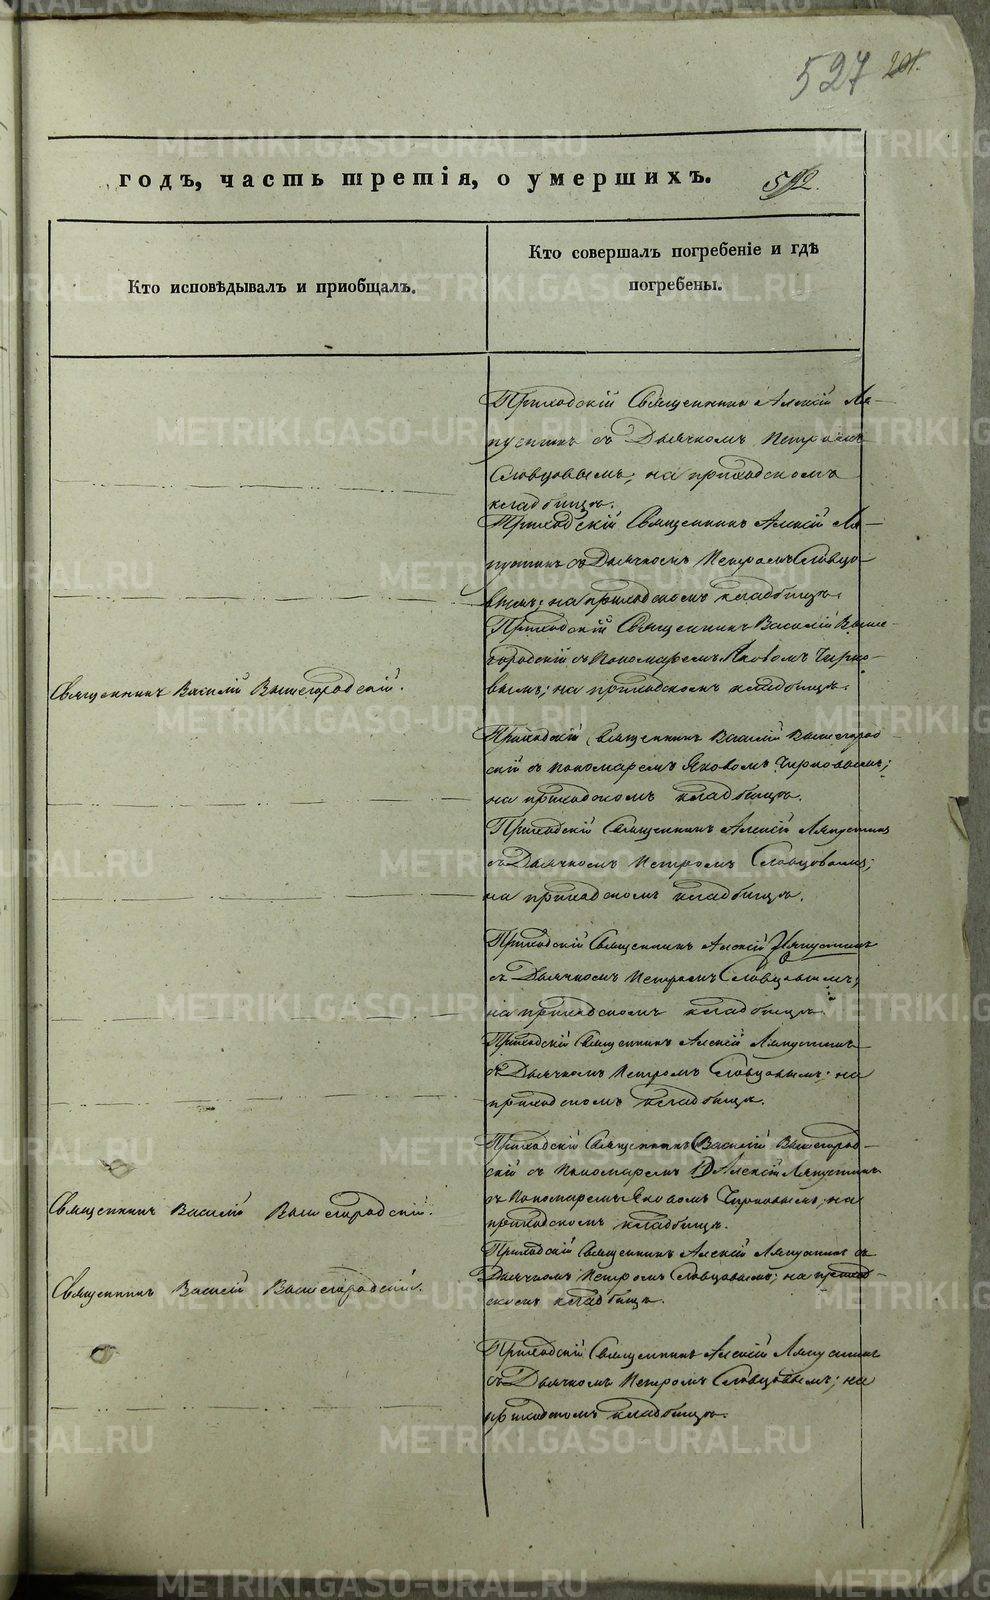 527 201.
годъ, часть третія, о умершихъ. 592.
Кто исповѣдывалъ и приобщалъ.
Кто совершалъ погребеніе и гдѣ
погребены.
Приходскій Священникъ Алексій Ля-
пустинъ съ Дьячкомъ Петромъ
Словцовымъ; на приходскомъ
кладбищѣ.
Приходскій Священникъ Алексій Ля-
пустинъ съ Дьячкомъ Петромъ Словцо-
вымъ; на приходскомъ кладбищѣ.
Священникъ Василій Вышегородскій.
Приходскій Священникъ Василій Выше-
городскій съ Пономаремъ Яковомъ Чирко-
вымъ; на приходскомъ кладбищѣ.
Приходскій Священникъ Василій Вышегород
скій съ Пономаремъ Яковомъ Чирковымъ;
на приходскомъ кладбищѣ.
Приходскій Священникъ Алексій Ляпустинъ
съ Дьячкомъ Петромъ Словцовымъ;
на приходскомъ кладбищѣ.
Приходскій Священникъ Алексій Ляпустинъ
съ Дьячкомъ Петромъ Словцовымъ;
на приходскомъ кладбищѣ.
Приходскій Священникъ Алексій Ляпустинъ
съ Дьячкомъ Петромъ Словцовымъ; на
приходскомъ кладбищѣ.
Священникъ Василій Вышегородскій.
Приходскій Священникъ (Василій Вышегород-
скій съ Пономаремъ) Алексій Ляпустинъ
съ Пономаремъ Яковомъ Чирковымъ; на
приходскомъ кладбищѣ.
Священникъ Василій Вышегородскій.
Приходскій Священникъ Алексій Ляпустинъ съ
Дьячкомъ Петромъ Словцовымъ; на приход-
скомъ кладбищѣ.
Приходскій Священникъ Алексій Ляпустинъ
съ Дьячкомъ Петромъ Словцовымъ; на
приходскомъ кладбищѣ.
METRIKI.GASO-URAL.RU